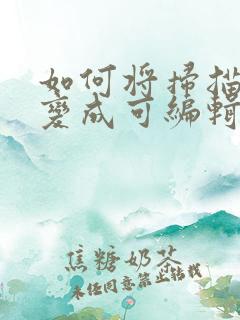 如何将掃描
變成可編輯
焦糖奶茶
未经同意禁止转载